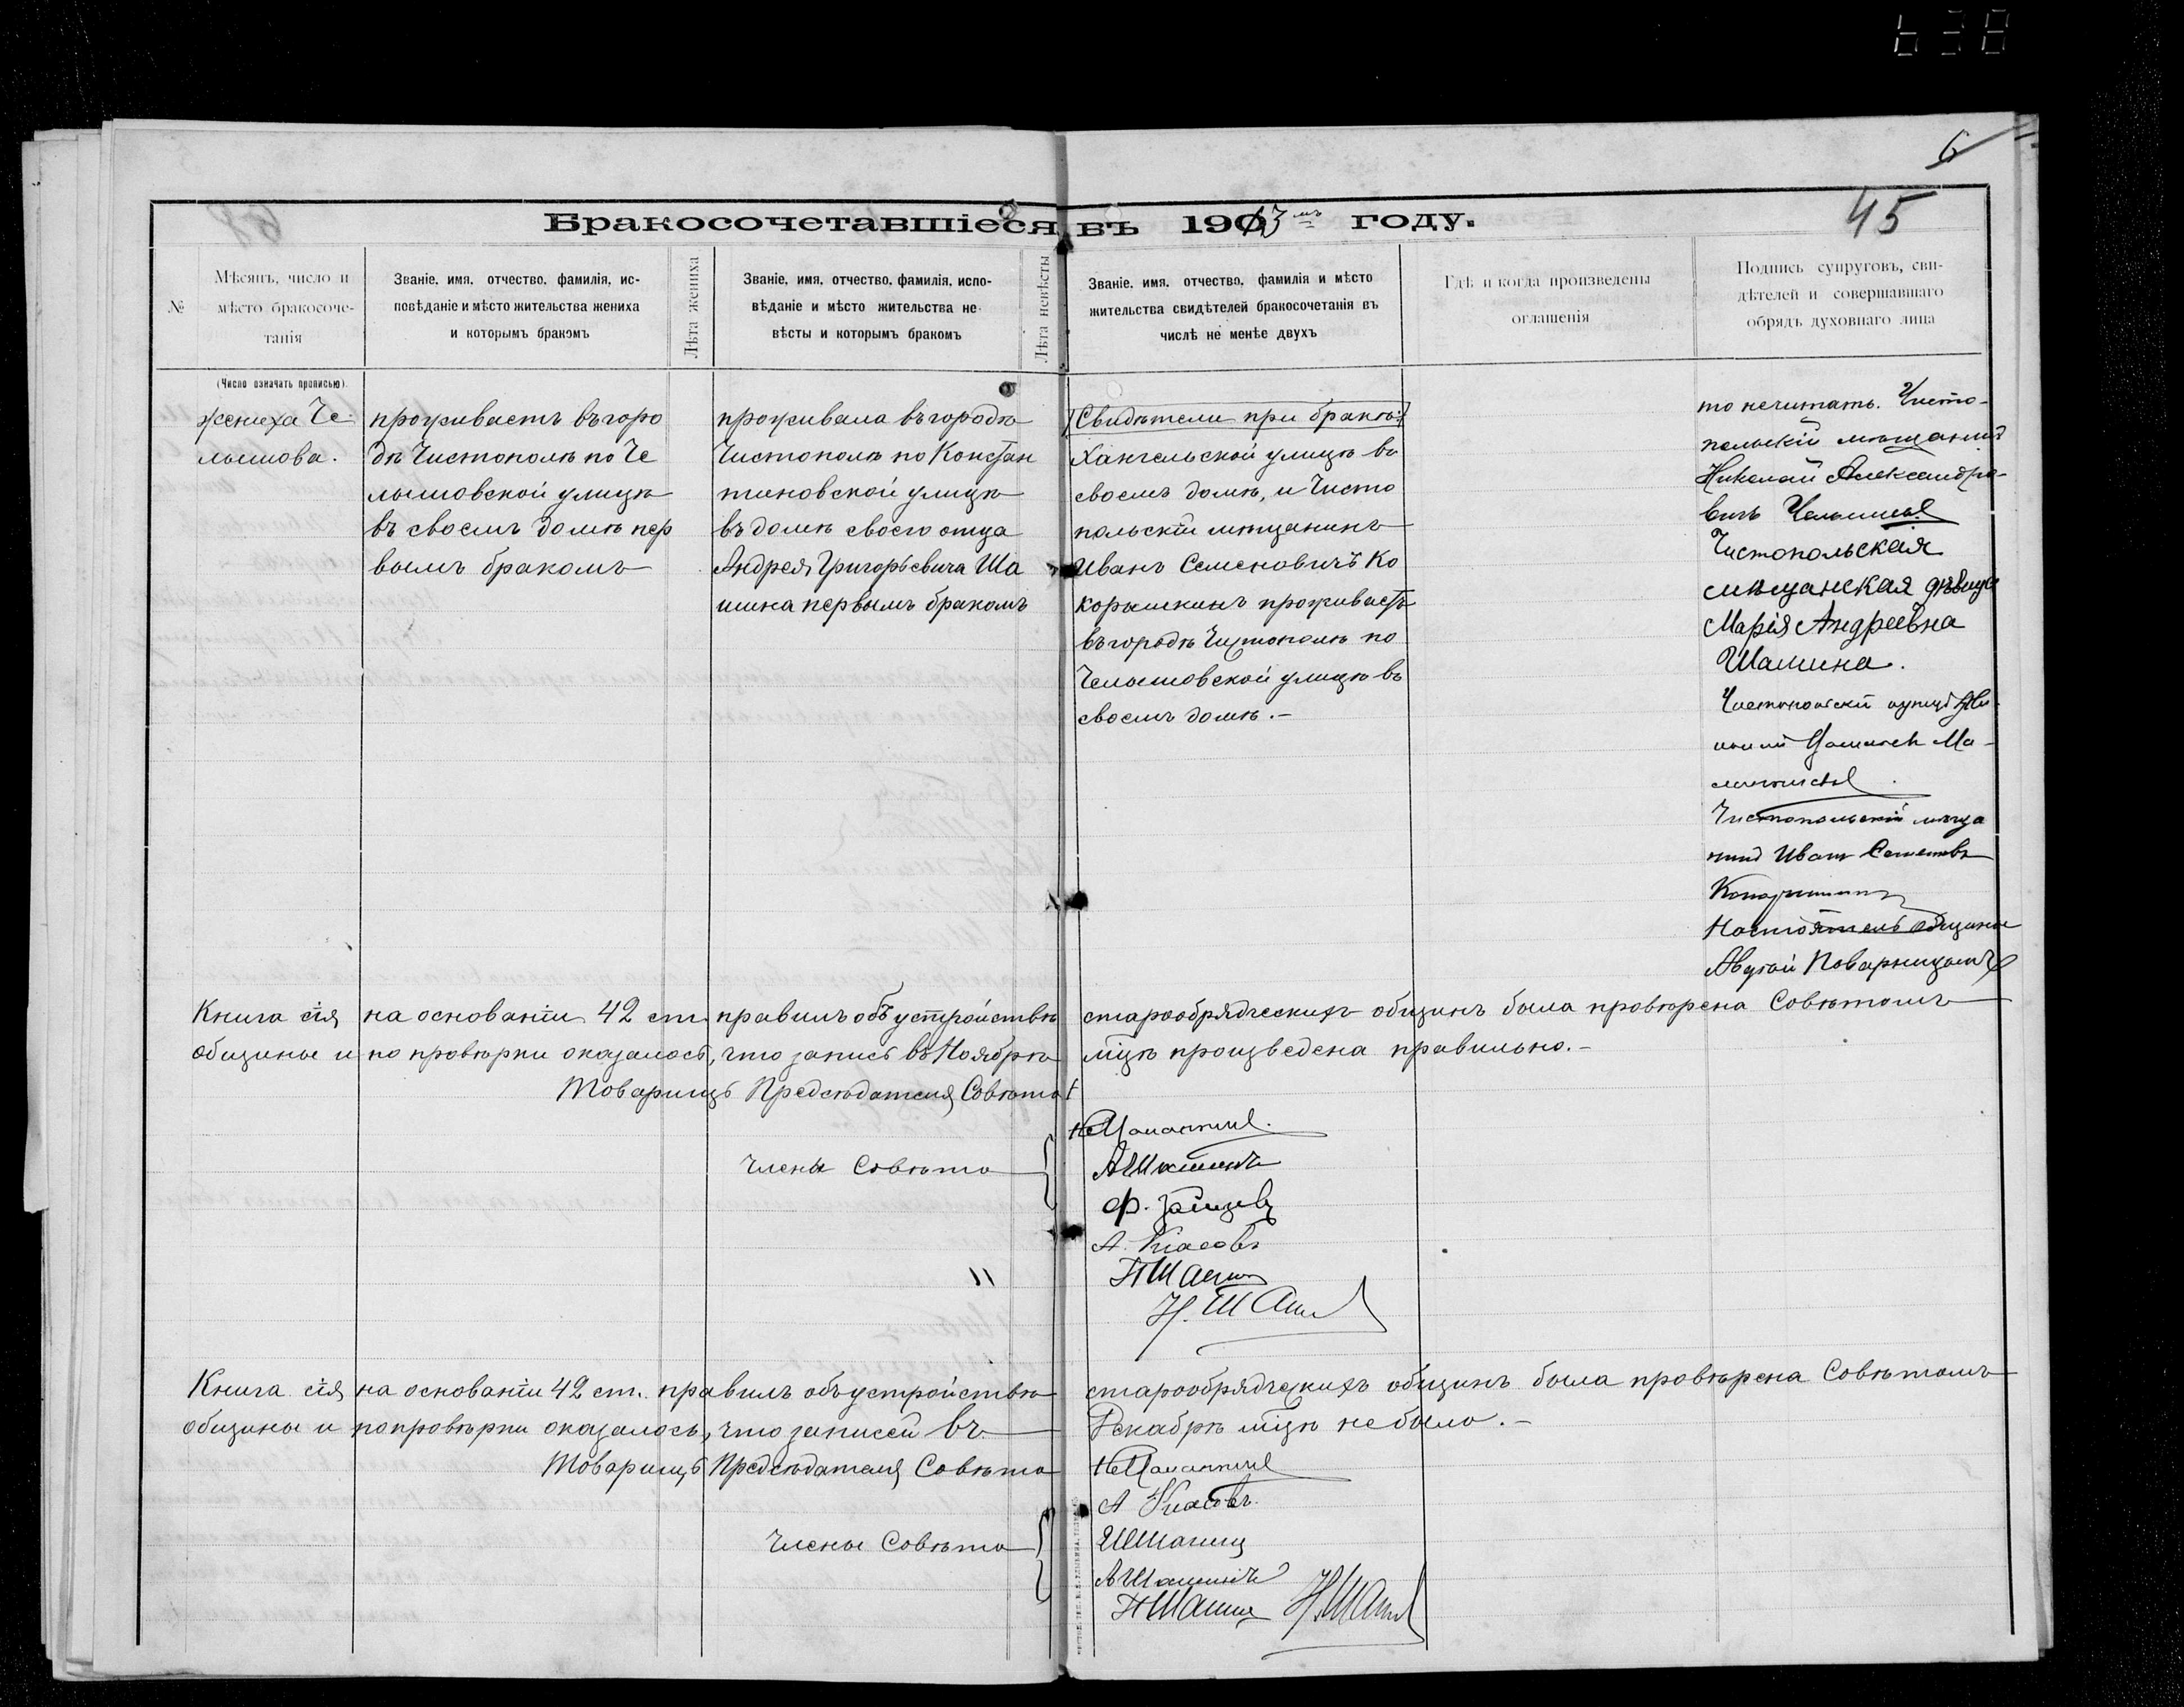 638
6
45
Бракосочетавшіеся въ 1913мъ году.
№
Мѣсяцъ, число и
мѣсто бракосоче-
танія
(Число означать прописью).
Званіе, имя, отчество, фамилія, ис-
повѣданіе и мѣсто жительства жениха
и которымъ бракомъ
Лѣта жениха
Званіе, имя, отчество, фамилія, испо-
вѣданіе и мѣсто жительства не-
вѣсты и которымъ бракомъ
Лѣта невѣсты
Званіе, имя, отчество, фамилія и мѣсто
жительства свидѣтелей бракосочетанія въ
числѣ не менѣе двухъ
Гдѣ и когда произведены
оглашенія
Подпись супруговъ, сви-
дѣтелей и совершавшаго
обрядъ духовнаго лица
жениха Че-
лышова.
проживаетъ въ горо
дѣ Чистополѣ по Че
лышовской улицѣ
въ своемъ домѣ пер
вымъ бракомъ
проживала въ городѣ
Чистополѣ по Констан
тиновской улицѣ
въ домѣ своего отца
Андрея Григорьевича Ша
шина первымъ бракомъ
Свидѣтели при бракѣ:
Хангельской улицѣ въ
своемъ домѣ, и Чисто
польскій мѣщанинъ
Иванъ Семеновичъ Ко
корышкинъ проживаетъ
въ городѣ Чистополѣ по
Челышовской улицѣ въ
своемъ домѣ.-
то не читать. Чисто-
польскій мѣщанинъ
Николай Александро-
вичъ Челышевъ
Чистопольская
мѣщанская дѣвица
Марія Андреевна
Шашина.
Чистопольскій купецъ
Ма-
Чистопольскій мѣща
нинъ Иванъ Семеновъ
Кокорышкинъ
Настоятель общины
Поварницынъ
Книга сія на основаніи 42 ст. правилъ объ устройствѣ старообрядческихъ общинъ была провѣрена Совѣтомъ
общины и по провѣрки оказалось, что запись въ Ноябрѣ мцѣ произведена правильно.-
Товарищъ Предсѣдателя Совѣта
Члены Совѣта
А Шашинъ
Ф. Зайцевъ
А. Власовъ
П Шашинъ
Н. Шашин
Книга сія на основаніи 42 ст. правилъ объ устройствѣ старообрядческихъ общинъ была провѣрена Совѣтомъ
общины и по провѣрки оказалось, что записей въ Декабрѣ мцѣ не было.-
Товарищъ Предсѣдателя Совѣта
Члены Совѣта
А Власовъ
И Шашинъ
А Шашинъ
П Шашинъ Н. Шашин